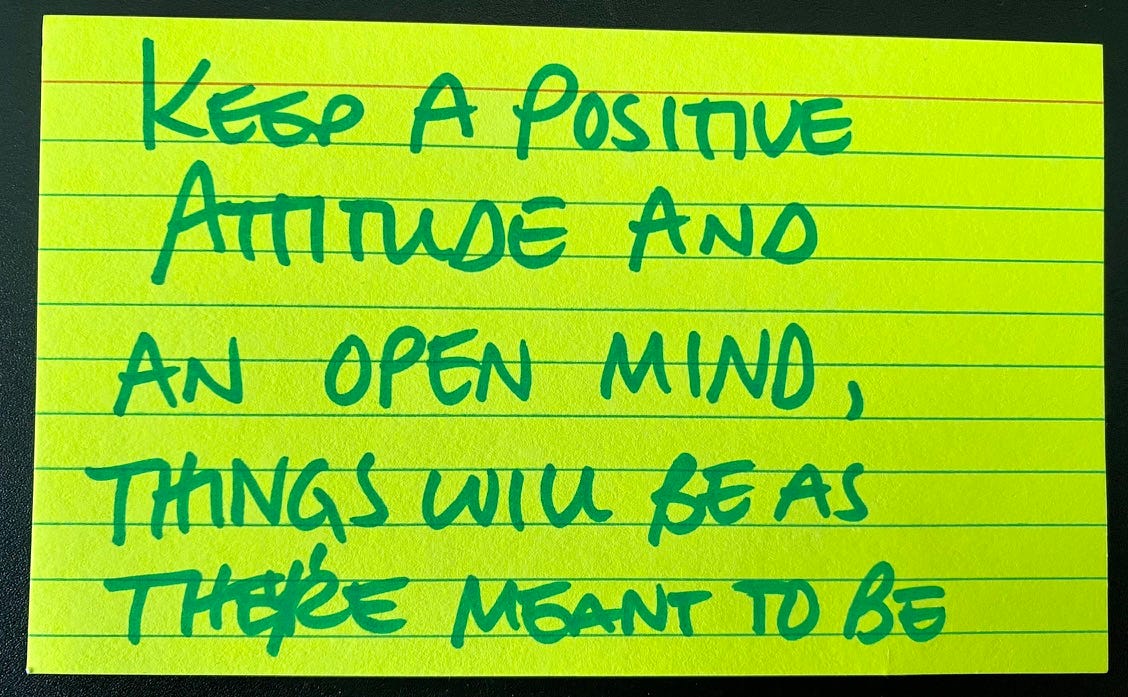 KEEP A POSITIVE
ATTITUDE AND
AN OPEN MIND,
THINGS WILL BE AS
THEY'RE MEANT TO BE